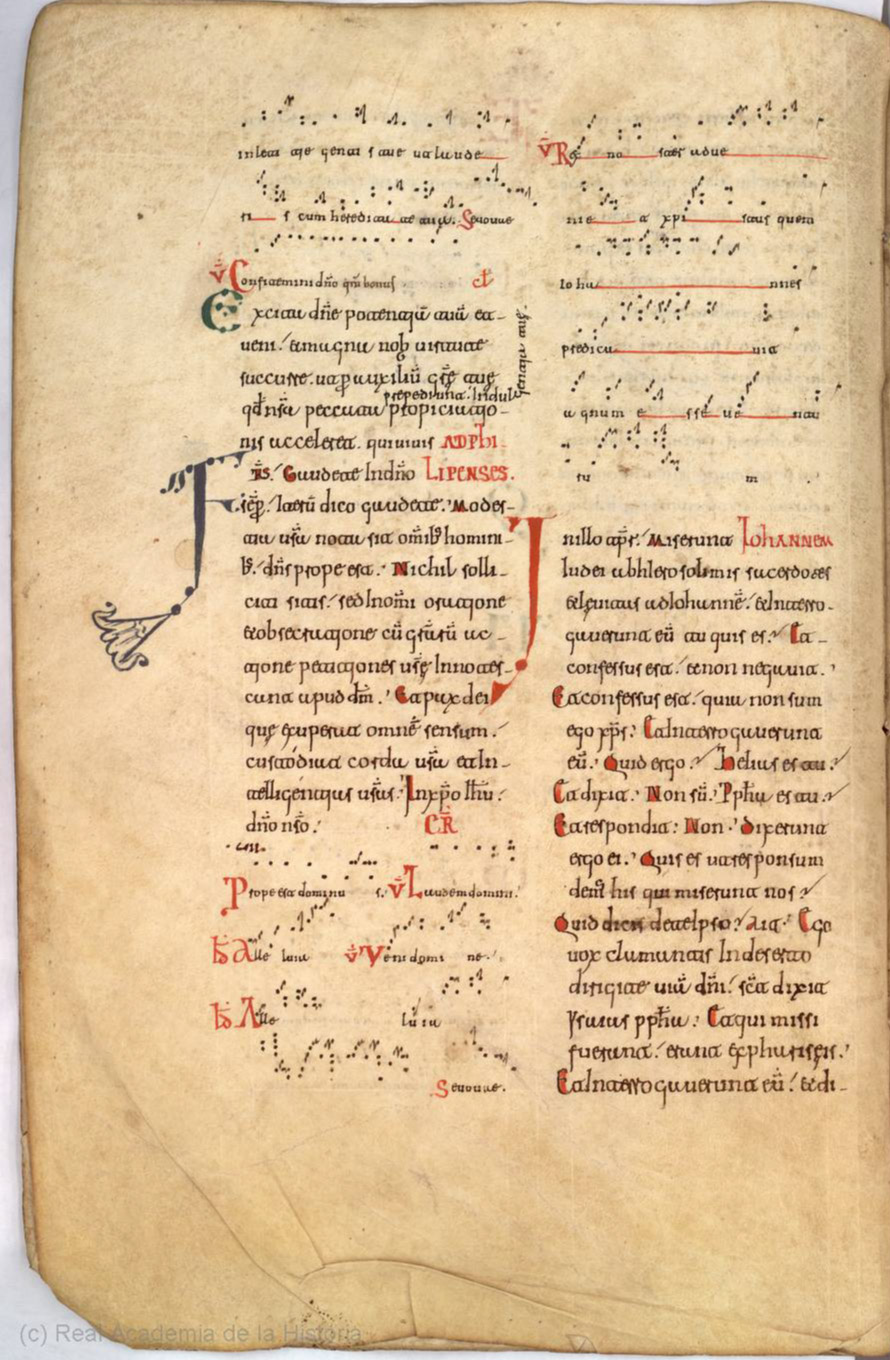 in leti tie gentis tue ut laude
ri s cum hereditate tua. Seuouae
V̄ Confitemini dño qm̄ bonus ct̄
Excita dñe potentiã tuã et-
ueni. et magna nob uirtute
succurre. ut p auxiliũ grę tuę
prepediunt. Indulgentia tuę.
qđ nsa peccata propiciatio-
nis acceleret. qui uiuis AD Phi-
Frs. Gaudete In dño LIPENSES.
sep. Iterũ dico gaudete. Modes-
tia usa nota sit omib homini-
b. dñs prope est. Nichil solli-
citi sitis. sed In omi oratione
et obsecratione cũ grarũ ac-
tione petitiones usę Innotes-
cant apud dm. Et pax dei
quę exuperat omnē sensum.
custodiat corda usa et In-
telligentias usas. In xpo Ihu.
dño nso. GR
Prope est dominu s. V̄ Laudem domini.
Alle luia V̄ Veni domi ne.
Alle luia
Seuouae.
V̄ Rex no ster adue
nie t xpi stus quem
Ioha nnes
predica uit
agnum e sse ue ntu
ru m
In illo tpr. Miserunt Iohannem
Iudei ab hierosolimis sacerdotes
et leuitas ad Iohannē. et Interro-
gauerunt eũ tu quis es. Et-
confessus est. et non negauit.
Et confessus est. quia non sum
ego xps. Et Interrogauerunt
eũ. Quid ergo. Helias es tu.
Et dixit. Non sũ. Ppha es tu.
Et respondit. Non. Dixerunt
ergo ei. Quis es ut responsum
dem his qui miserunt nos.
Quid dicis de te Ipso. Ait. Ego
uox clamantis In deserto
dirigite uiã dñi. sct dixit
Ysaias ppha. Et qui missi
fuerant. erant ex phariseis.
Et Interrogauerunt eũ. et di-
(c) Real Academia de la Historia